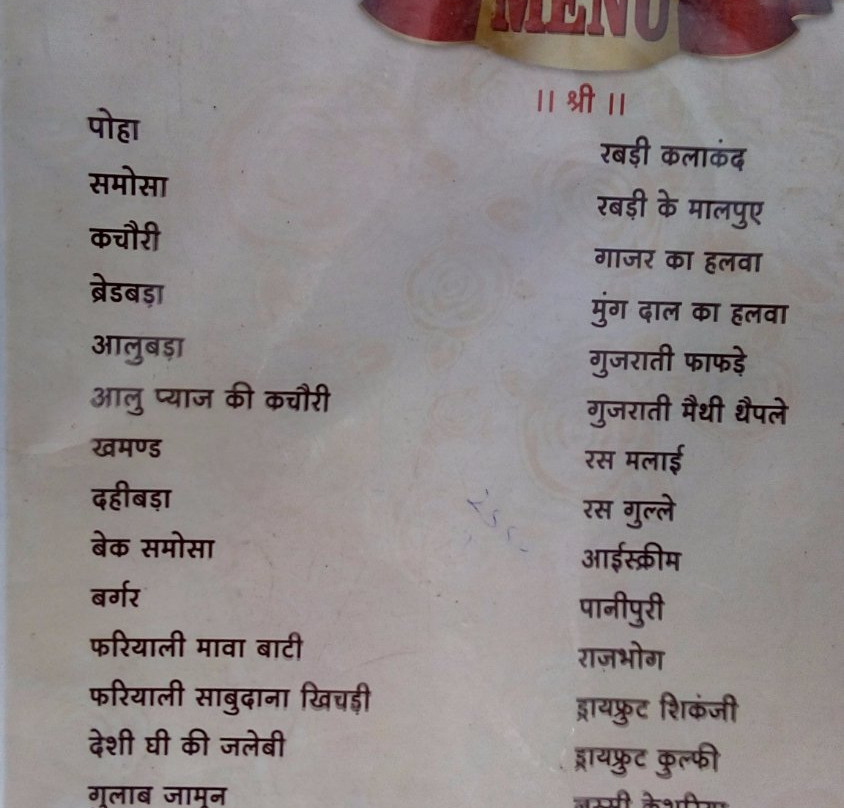 MENU
|| श्री ||
पोहा
समोसा
कचौरी
ब्रेडबड़ा
आलुबड़ा
आलु प्याज की कचौरी
खमण्ड
दहीबड़ा
बेक समोसा
बर्गर
फरियाली मावा बाटी
फरियाली साबुदाना खिचड़ी
देशी घी की जलेबी
गुलाब जामुन
रबड़ी कलाकंद
रबड़ी के मालपुए
गाजर का हलवा
मुंग दाल का हलवा
गुजराती फाफड़े
गुजराती मैथी थैपले
रस मलाई
रस गुल्ले
आईस्क्रीम
पानीपुरी
राजभोग
ड्रायफ्रुट शिकंजी
ड्रायफ्रुट कुल्फी